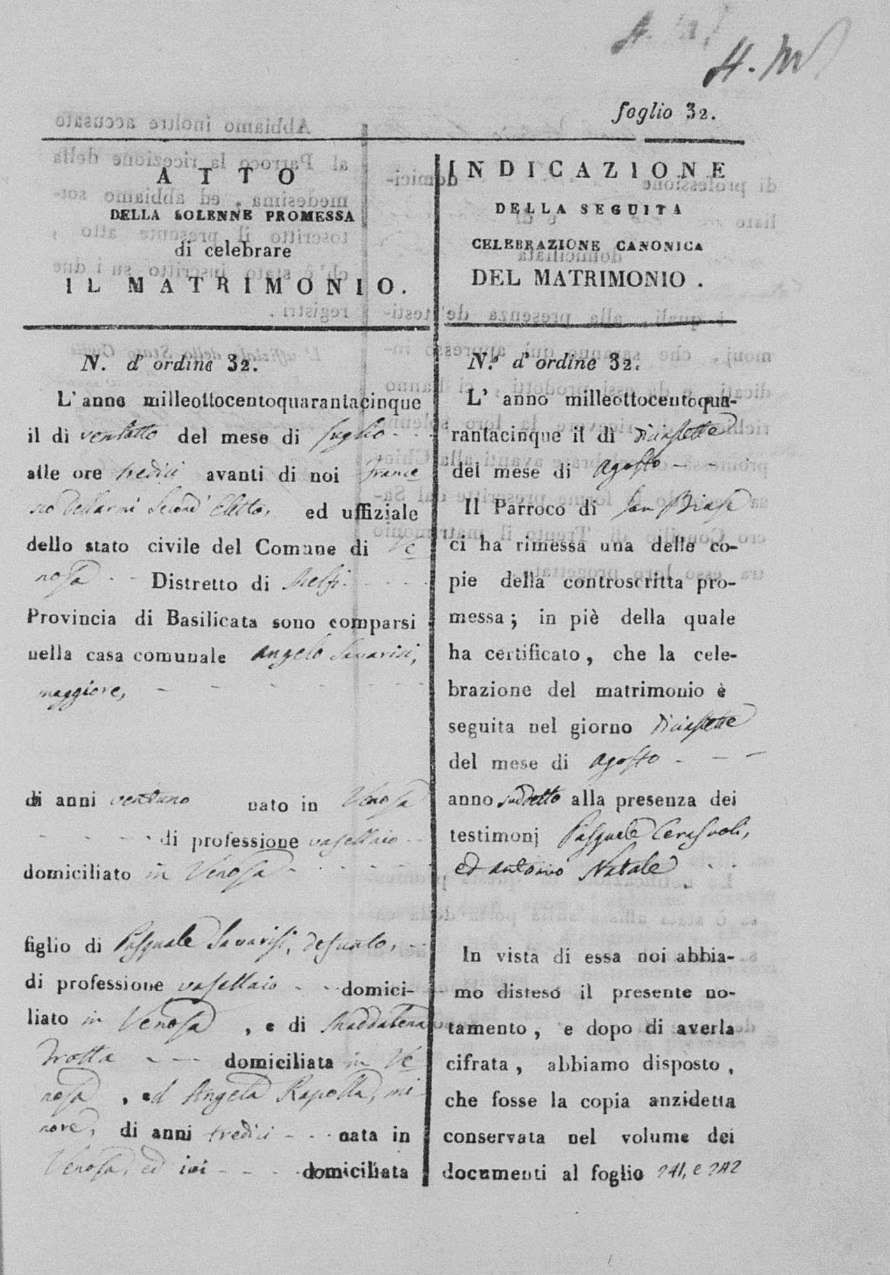 foglio 32.
ATTO
DELLA SOLENNE PROMESSA
di celebrare
IL MATRIMONIO.
N. d'ordine 32.
L'anno milleottocentoquarantacinque
il di ventotto del mese di luglio
alle ore tredici avanti di noi France
sco Second' Eletto, ed uffiziale
dello stato civile del Comune di Ve
nosa Distretto di Melfi
Provincia di Basilicata sono comparsi
nella casa comunale Angelo Savarisi,
maggiore,
di anni ventuno nato in Venosa
di professione vasellaio
domiciliato in Venosa
figlio di Pasquale Savarisi, defunto,
di professione vasellaio domici-
liato in Venosa, e di Maddalena
Trotta domiciliata in Ve
nosa, ed Angela Rapolla, mi
nore, di anni tredici nata in
Venosa, ed ivi domiciliata
INDICAZIONE
DELLA SEGUITA
CELEBRAZIONE CANONICA
DEL MATRIMONIO.
N.° d'ordine 32.
L'anno milleottocentoqua-
rantacinque il di diciassette
del mese di agosto
Il Parroco di San Biase
ci ha rimessa una delle co-
pie della controscritta pro-
messa; in piè della quale
ha certificato, che la cele-
brazione del matrimonio è
seguita nel giorno diciassette
del mese di agosto
anno suddetto alla presenza dei
testimonj Pasquale
ed Antonio Natale
In vista di essa noi abbia-
mo disteso il presente no-
tamento, e dopo di averla
cifrata, abbiamo disposto,
che fosse la copia anzidetta
conservata nel volume dei
documenti al foglio 241, e 242